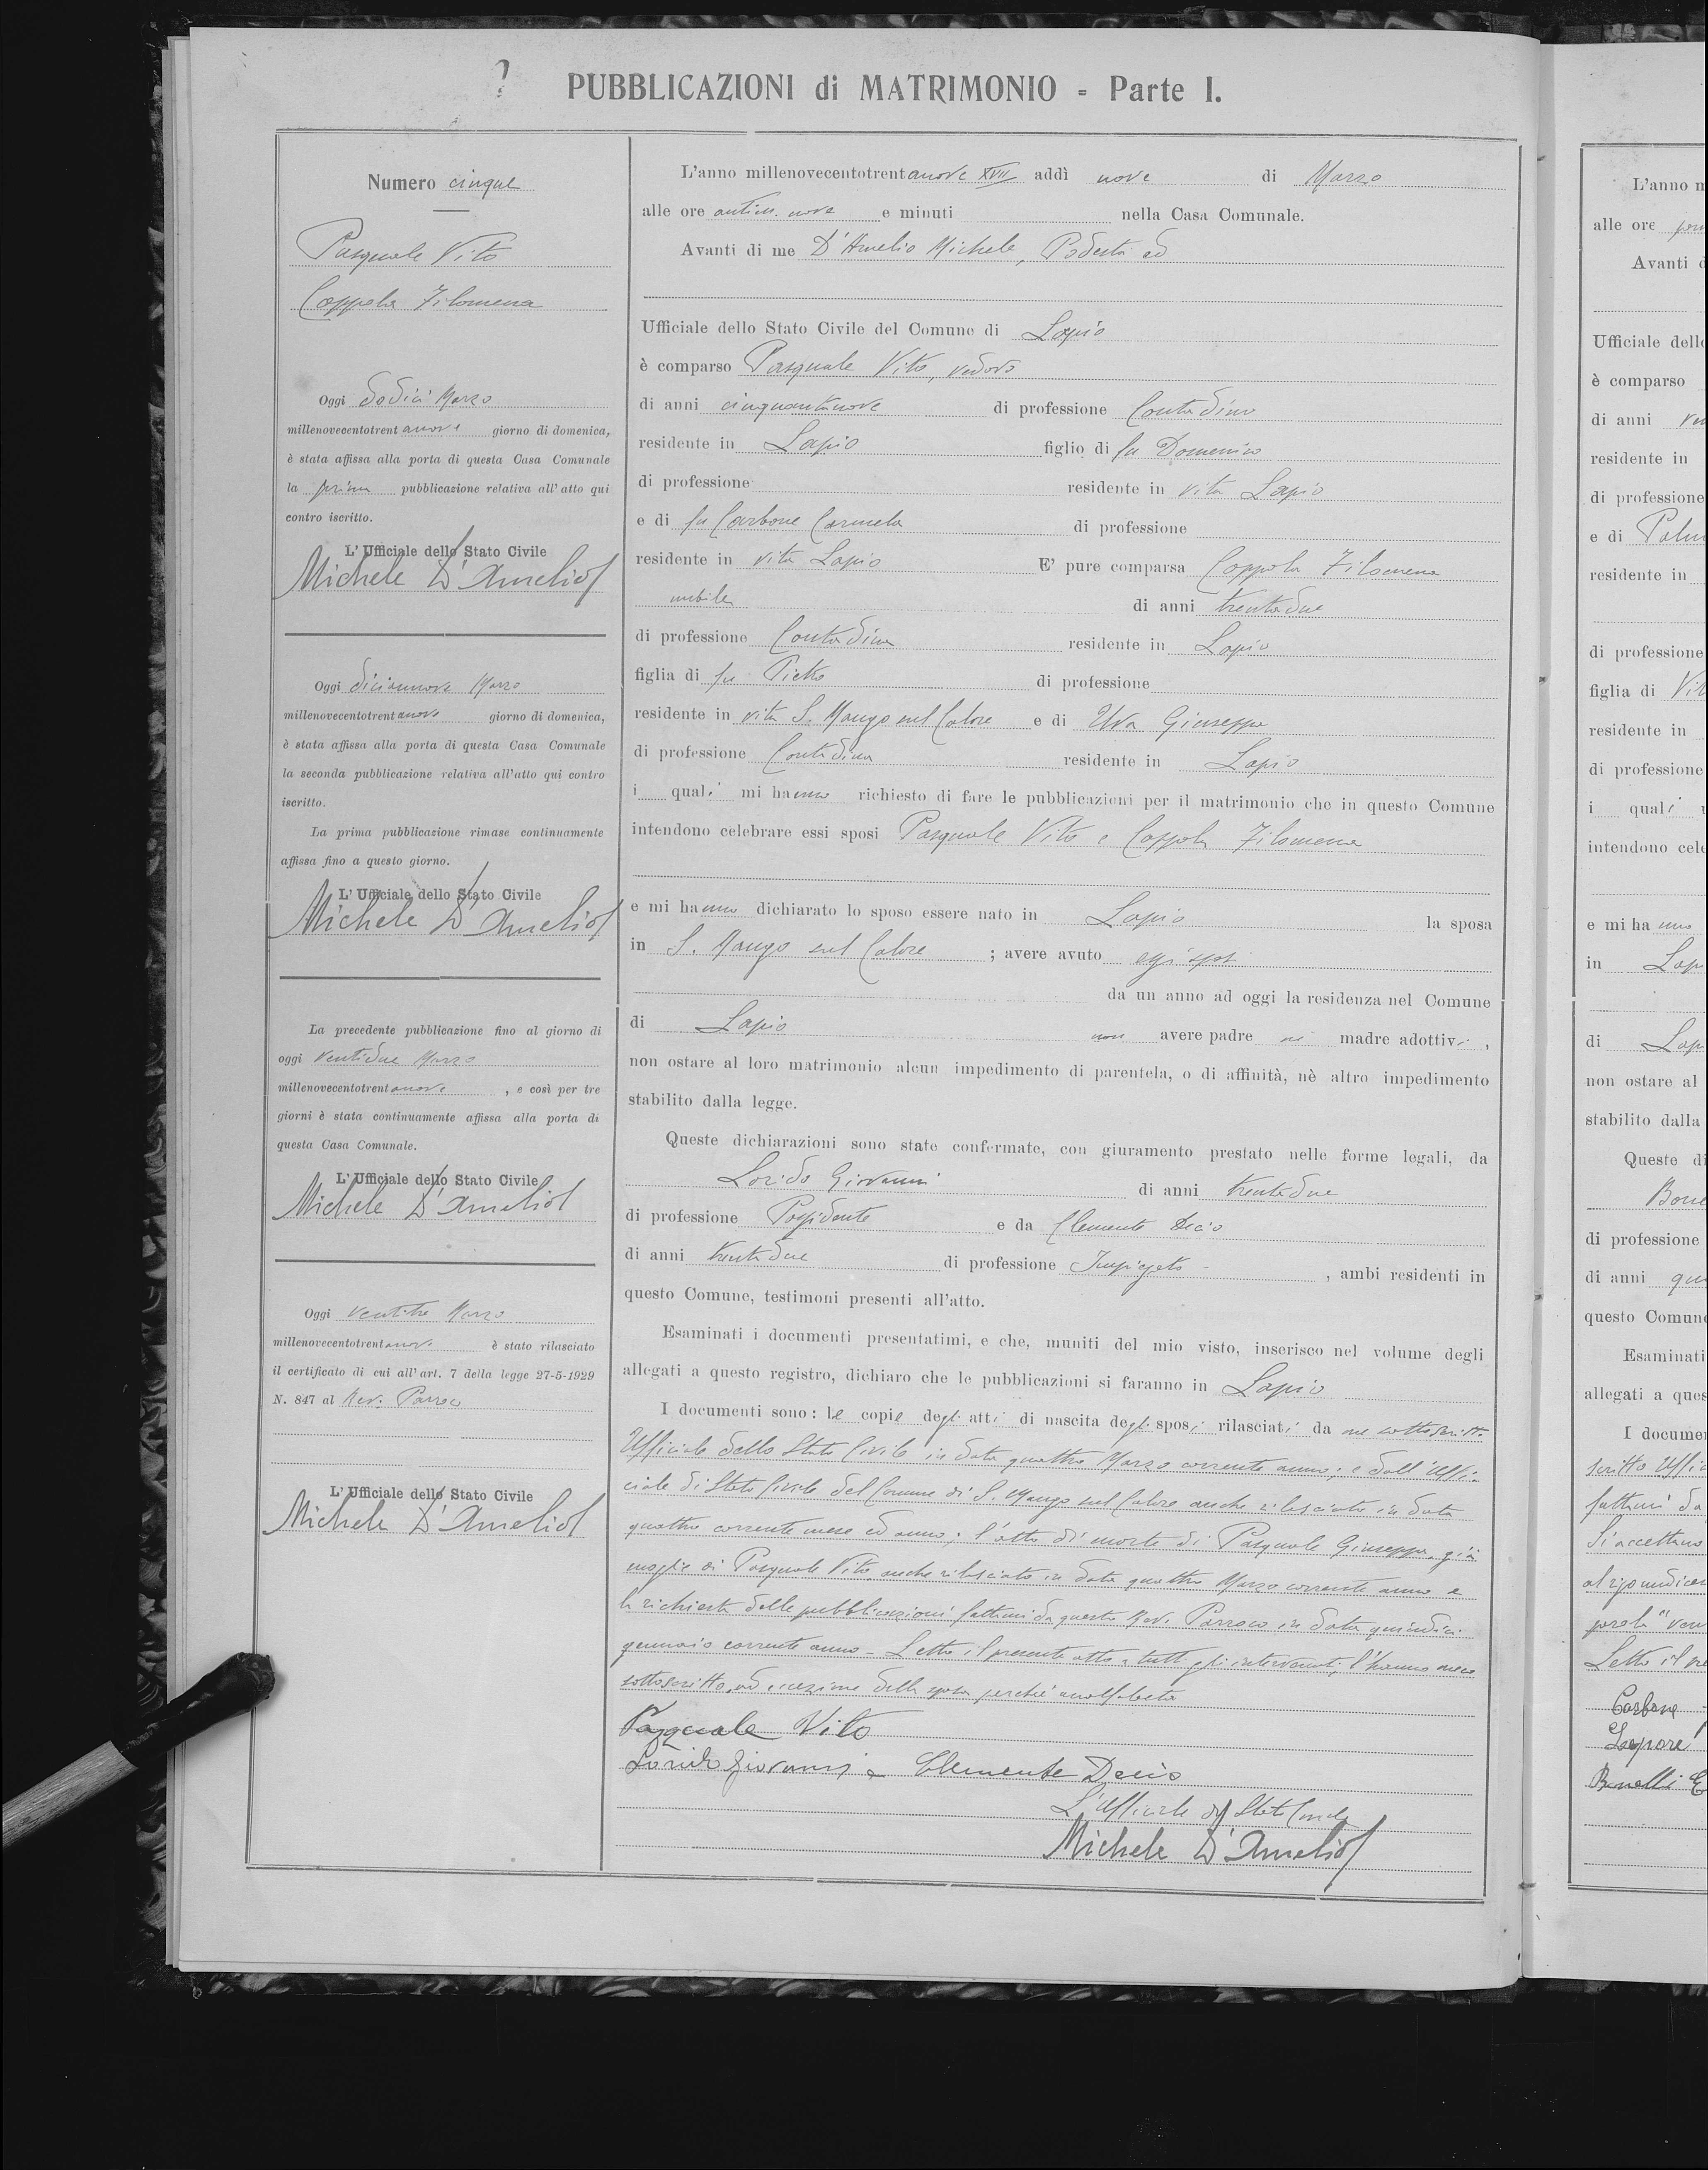 PUBBLICAZIONI di MATRIMONIO - Parte I.
?
Numero cinque
Pasquale Vito
Coppola Filomena
Oggi dodici Marzo
millenovecentotrentanove giorno di domenica,
è stata affissa alla porta di questa Casa Comunale
la prima pubblicazione relativa all'atto qui
contro iscritto.
L'Ufficiale dello Stato Civile
Michele D'Amelio
Oggi diciannove Marzo
millenovecentotrentanove giorno di domenica,
è stata affissa alla porta di questa Casa Comunale
la seconda pubblicazione relativa all'atto qui contro
iscritto.
La prima pubblicazione rimase continuamente
affissa fino a questo giorno.
L'Ufficiale dello Stato Civile
Michele D'Amelio
La precedente pubblicazione fino al giorno di
oggi ventidue Marzo
millenovecentotrentanove , e così per tre
giorni è stata continuamente affissa alla porta di
questa Casa Comunale.
L'Ufficiale dello Stato Civile
Michele D'Amelio
Oggi ventitre Marzo
millenovecentotrentanove è stato rilasciato
il certificato di cui all'art. 7 della legge 27-5-1929
N. 847 al Rev. Parroco
L'Ufficiale dello Stato Civile
Michele D'Amelio
L'anno millenovecentotrentanove XVII addì nove di Marzo
alle ore antim. nove e minuti nella Casa Comunale.
Avanti di me D'Amelio Michele, Podestà ed
Ufficiale dello Stato Civile del Comune di Lapio
è comparso Pasquale Vito, vedovo
di anni cinquantanove di professione Contadino
residente in Lapio figlio di fu Domenico
di professione residente in vita Lapio
e di fu Carbone Carmela di professione
residente in vita Lapio E' pure comparsa Coppola Filomena
nubile di anni trentadue
di professione Contadina residente in Lapio
figlia di fu Pietro di professione
residente in vita S. Mango sul Calore e di Uva Giuseppa
di professione Contadina residente in Lapio
i quali mi hanno richiesto di fare le pubblicazioni per il matrimonio che in questo Comune
intendono celebrare essi sposi Pasquale Vito e Coppola Filomena
e mi hanno dichiarato lo sposo essere nato in Lapio la sposa
in S. Mango sul Calore ; avere avuto essi sposi
da un anno ad oggi la residenza nel Comune
di Lapio non avere padre nè madre adottivi ,
non ostare al loro matrimonio alcun impedimento di parentela, o di affinità, nè altro impedimento
stabilito dalla legge.
Queste dichiarazioni sono state confermate, con giuramento prestato nelle forme legali, da
Lorido Giovanni di anni trentadue
di professione Possidente e da Clemente Decio
di anni trentadue di professione Impiegato , ambi residenti in
questo Comune, testimoni presenti all'atto.
Esaminati i documenti presentatimi, e che, muniti del mio visto, inserisco nel volume degli
allegati a questo registro, dichiaro che le pubblicazioni si faranno in Lapio
I documenti sono: le copie degli atti di nascita degli sposi rilasciati da me sottoscritto
Ufficiale dello Stato Civile in data quattro Marzo corrente anno; e dall'Uffi-
ciale di Stato Civile del Comune di S. Mango sul Calore anche rilasciato in data
quattro corrente mese ed anno; l'atto di morte di Pasquale Giuseppa, già
moglie di Pasquale Vito, anche rilasciato in data quattro Marzo corrente anno e
la richiesta delle pubblicazioni fattami da questo Rev. Parroco in data quindici
gennaio corrente anno - Letto il presente atto a tutti gli intervenuti, l'hanno meco
sottoscritto, ad eccezione della sposa perchè analfabeta
Pasquale Vito
Lorido Giovanni e Clemente Decio
L'Ufficiale di Stato Civile
Michele D'Amelio
L'anno
alle ore
Avanti
Ufficiale
è comparso
di anni
residente in
di professione
e di
residente in
di professione
figlia di
residente in
di professione
i quali
intendono
e mi hanno
in
di
non ostare al
stabilito dalla
Queste
di professione
di anni
questo Comune
Esaminati
allegati a
Carbone
Lepore